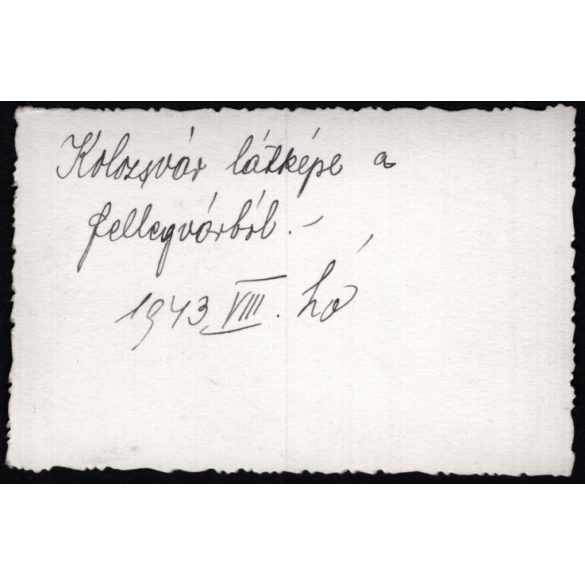 Kolozsvár látképe a
fellegvárból. –
1943 VIII. hó